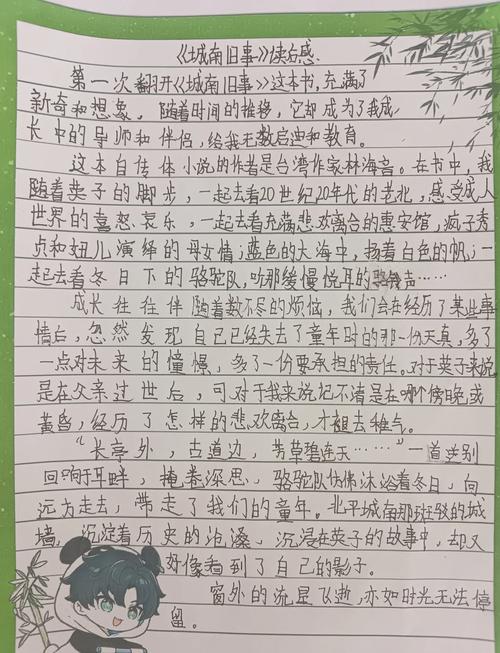 《城南旧事》读后感
第一次翻开《城南旧事》这本书,充满了
新奇和想象,随着时间的推移,它却成为了我成
长中的导师和伴侣,给我无数启迪和教育。
这本自传体小说的作者是台湾作家林海音。在书中,我
随着英子的脚步,一起去看20世纪20年代的老北,感受成人
世界的喜怒哀乐,一起去看充满悲欢离合的惠安馆,疯子秀
贞和妞儿演绎的母女情;蓝色的大海中,扬着白色的帆;一
起去看冬日下的骆驼队,听那缓慢悦耳的铃声……
成长往往伴随着数不尽的烦恼,我们会在经历了某些事
情后,忽然发现自己已经失去了童年时的那一份天真,多了
一点对未来的憧憬,多了一份要承担的责任。对于英子来说
是在父亲过世后,可对于我来说记不清是在哪个傍晚或
黄昏,经历了怎样的悲欢离合,才褪去稚气。
“长亭外,古道边,芳草碧连天……”一首送别
回响于耳畔,掩卷深思,骆驼队仿佛沐浴着冬日,向
远方走去,带走了我们的童年。北平城南那斑驳的城
墙,沉淀着历史的沧桑,沉浸在英子的故事中,却又
好像看到了自己的影子。
窗外的流星飞逝,亦如时光无法停
留。